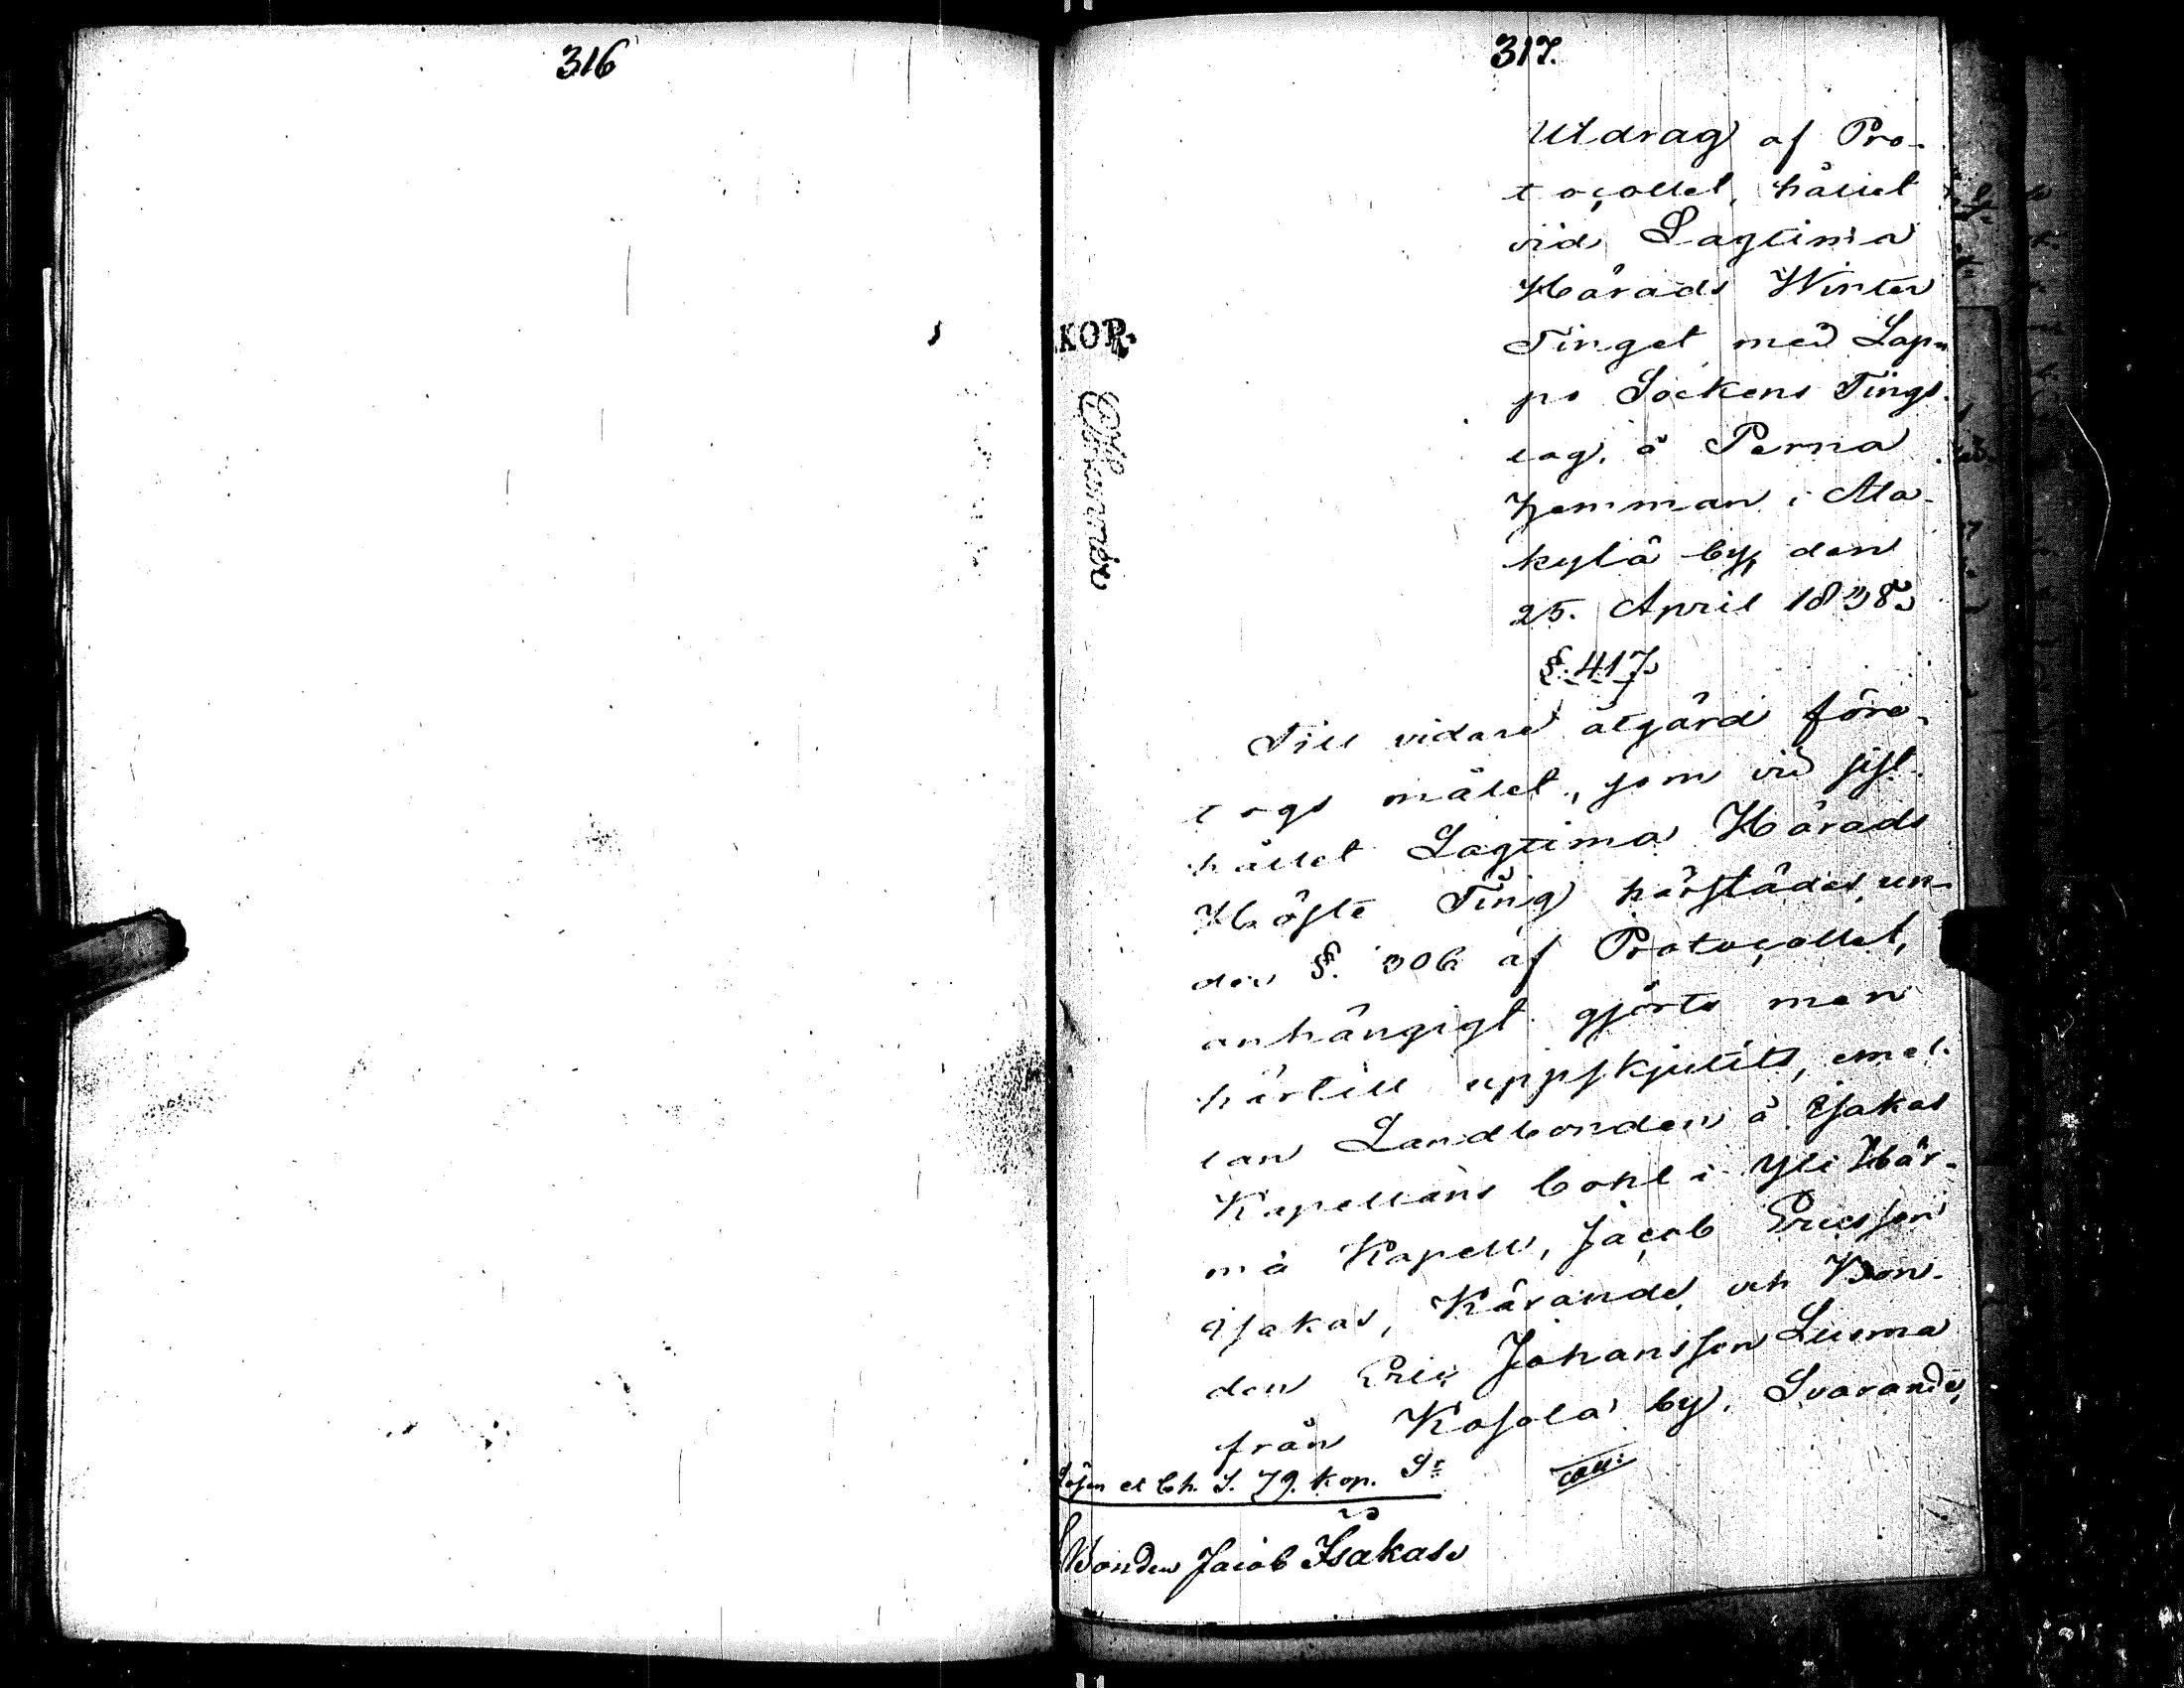 316
317.
Utdrag af Pro-
tocollet, hållet
vid Lagtima
Härads Winter
Tinget med Lap-
po Sockens Tings-
lag, å Perna
Hemman i Ala-
kylä by, den
25. April 1838.
§. 417.
Till vidare åtgärd före-
togs målet, som vid sist-
hållet Lagtima Härads
Höste Ting härstädes un-
der §. 306 af Protocollet,
anhängigt gjorts men
härtill uppskjutits, emel-
lan Landbonden å Isakas
Kapellans bohl i Yli Här-
mä Kapell, Jacob Ericsson
Isakas, Kärande och Bon-
den Eric Johansson Luoma
från Kosola by, Svarande,
Lösen et Ch. S. 79. kop. Sr
Bonden Jacob Isakas
KOP.